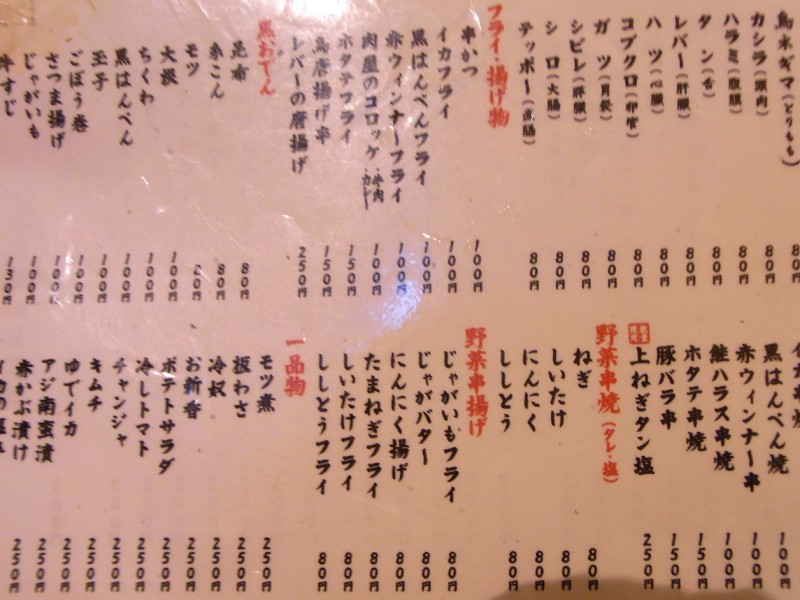 鳥ネギマ(とりもも) 80円
カシラ(頭肉) 80円
ハラミ(腹膜) 80円
タン(舌) 80円
レバー(肝臓) 80円
ハツ(心臓) 80円
コブクロ(卵管) 80円
ガツ(胃袋) 80円
シビレ(膵臓) 80円
シロ(大腸) 80円
テッポー(直腸) 80円
フライ・揚げ物
串かつ 100円
イカフライ 100円
黒はんぺんフライ 100円
赤ウィンナーフライ 100円
肉屋のコロッケ・牛肉・カレー 100円
ホタテフライ 150円
鳥唐揚げ串 150円
レバーの唐揚げ 250円
黒おでん
昆布 80円
糸こん 80円
モツ 20円
大根 100円
ちくわ 100円
黒はんぺん 100円
玉子 100円
ごぼう巻 100円
さつま揚げ 100円
じゃがいも 100円
牛すじ 130円
黒はんぺん焼 100円
赤ウィンナー串 100円
鮭ハラス串焼 100円
ホタテ串焼 150円
豚バラ串 150円
上ねぎタン塩 250円
野菜串焼(タレ・塩)
ねぎ 80円
しいたけ 80円
にんにく 80円
ししとう 80円
野菜串揚げ
じゃがいもフライ 80円
じゃがバター 80円
にんにく揚げ 80円
たまねぎフライ 80円
しいたけフライ 80円
ししとうフライ 80円
一品物
モツ煮 250円
板わさ 250円
冷奴 250円
お新香 250円
ポテトサラダ 250円
冷しトマト 250円
チャンジャ 250円
キムチ 250円
ゆでイカ 250円
アジ南蛮漬 250円
赤かぶ漬け 250円